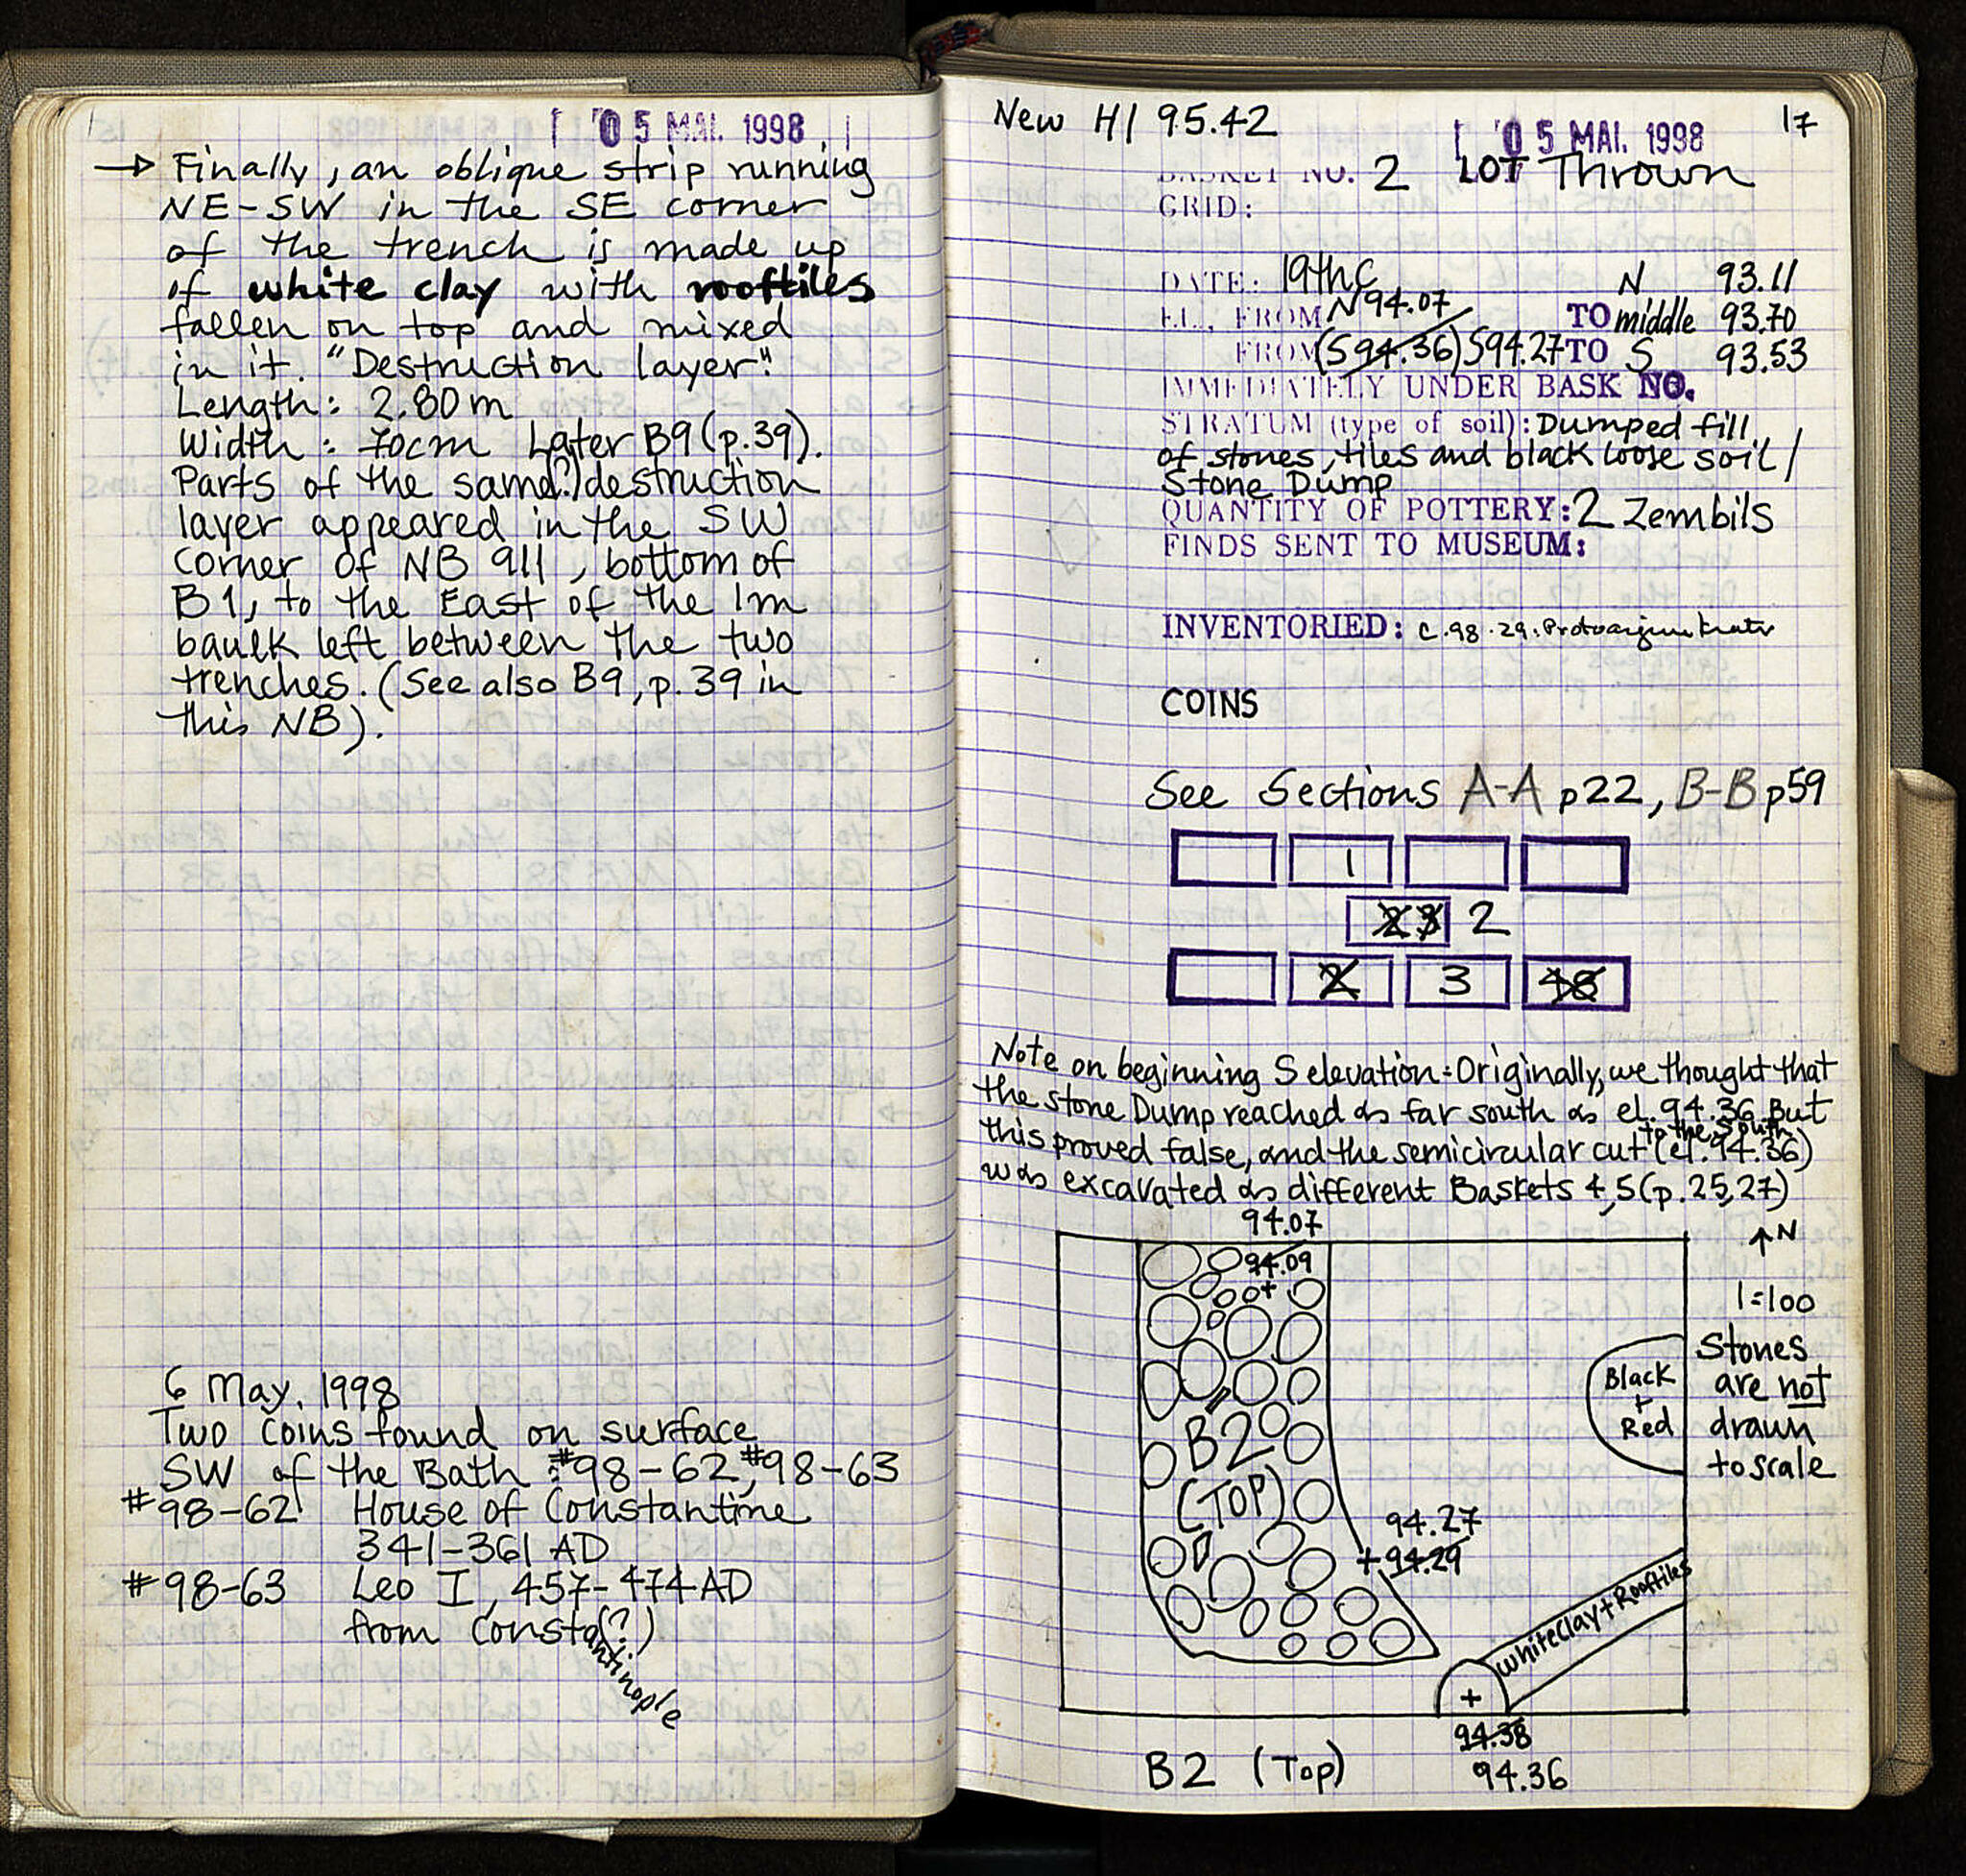 05 MAI. 1998
→ Finally, an oblique strip running
NE-SW in the SE corner
of the trench is made up
of white clay with rooftiles
fallen on top and mixed
in it. "Destruction layer."
Length: 2.80m
Width: 70cm Later B9 (p.39).
Parts of the same(?) destruction
layer appeared in the SW
corner of NB 911, bottom of
B1, to the East of the 1m
baulk left between the two
trenches. (See also B9, p.39 in
this NB).
6 May, 1998
Two coins found on surface
SW of the Bath: #98-62, #98-63
#98-62 House of Constantine
341-361 AD
#98-63 Leo I, 457-474 AD
from Constantinople (?)
New HI 95.42
05 MAI. 1998
17
BASKET NO. 2 LOT Thrown
GRID:
DATE: 19thC N 93.11
EL., FROM N 94.07 TO middle 93.70
FROM (S 94.36) S 94.27 TO S 93.53
IMMEDIATELY UNDER BASK NO.
STRATUM (type of soil): Dumped fill
of stones, tiles and black loose soil/
Stone Dump
QUANTITY OF POTTERY: 2 Zembils
FINDS SENT TO MUSEUM:
INVENTORIED: C.98.29: Protoarjun krater
COINS
See Sections A-A p22, B-B p59
1
2 3 2
2 3 48
Note on beginning S elevation: Originally, we thought that
the stone Dump reached as far south as el. 94.36. But
this proved false, and the semicircular cut to the South (el. 94.36)
was excavated as different Baskets 4,5 (p.25,27)
94.07
↑N
94.09
+
1=100
Stones
are not
drawn
to scale
Black
+
Red
B2
(TOP)
94.27
+94.29
White Clay + Rooftiles
+
94.38
94.36
B2 (Top)